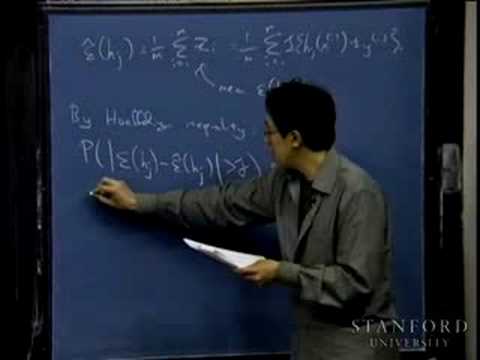 ε̂(h_j) = 1/m Σ_{i=1}^m Z_i = 1/m Σ_{i=1}^m 1{h_j(x^{(i)}) ≠ y^{(i)}}
mean ε(h_j)
By Hoeffding inequality
P(|ε(h_j) - ε̂(h_j)| > γ)
STANFORD
UNIVERSITY